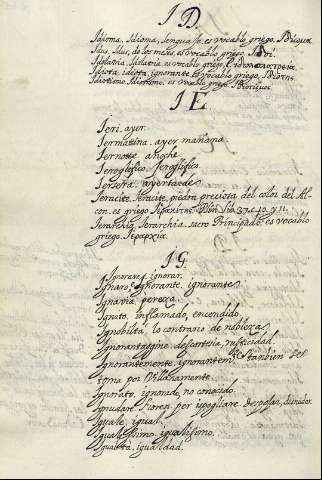 I D.
Idioma. Idioma, lengua. es vocablo griego.
Idus. Idus, de los meses. es vocablo griego.
Idolatria. Idolatria. es vocablo griego.
Idiota. idiota, ignorante. es vocablo griego.
Idiotismo. Idiotismo. es vocablo griego.
I E.
Ieri. ayer.
Iermattina. ayer mañana.
Iernotte. anoche.
Ieroglifico. Jeroglifico.
Iersera. ayer tarde.
Ieracite. Ieracite, piedra preciosa del color del Al-
con. es griego
Ierarchia. Ierarchia. sacro Principado. es vocablo
griego. Ιεραρχία.
I G.
Ignorare. ignorar.
Ignaro. ignorante, ignorante
Ignavia. pereza.
Ignito. inflamado, encendido.
Ignobiltà. lo contrario de nobleza.
Ignorantaggine. descortesia, rusticidad.
Ignorantemente. ignorantemte. tanbien se
toma por Villanamente.
Ignorato. ignorado, no conocido.
Ignudare. por ispogliare. despojar, desnudar.
Iguale. igual.
Igualissimo. igualisimo.
Igualità. igualdad.